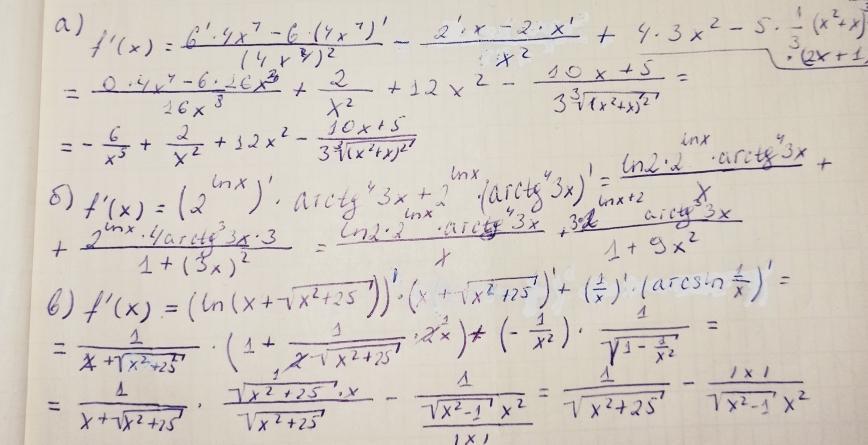 а) f'(x) = (6'·4x⁷ − 6·(4x⁷)')/(4x⁴)² − (2'·x − 2·x')/x² + 4·3x² − 5·1/3 (x²+x) ·(2x+1
= (0·4x⁴ − 6·16x³)/(16x³) + 2/x² + 12x² − (10x+5)/(3∛((x²+x)²)) =
= −6/x⁵ + 2/x² + 12x² − (10x+5)/(3∛((x²+x)²))
б) f'(x) = (2^(lnx))'·arctg⁴3x + 2^(lnx)·(arctg⁴3x)' = (ln2·2^(lnx)·arctg⁴3x)/x +
+ (2^(lnx)·4arctg³3x·3)/(1+(3x)²) = (ln2·2^(lnx)·arctg⁴3x)/x + (3·2^(lnx+2) arctg³3x)/(1+9x²)
в) f'(x) = (ln(x+√(x²+25)))'·(x+√(x²+25))' + (1/x)'·(arcsin 1/x)' =
= 1/(x+√(x²+25)) · (1 + 1/(2√(x²+25)) · 2x) + (−1/x²) · 1/√(1−1/x²) =
= 1/(x+√(x²+25)) · (√(x²+25)·x)/√(x²+25) − 1/((√(x²−1) x²)/|x|) = 1/√(x²+25) − |x|/(√(x²−1) x²)